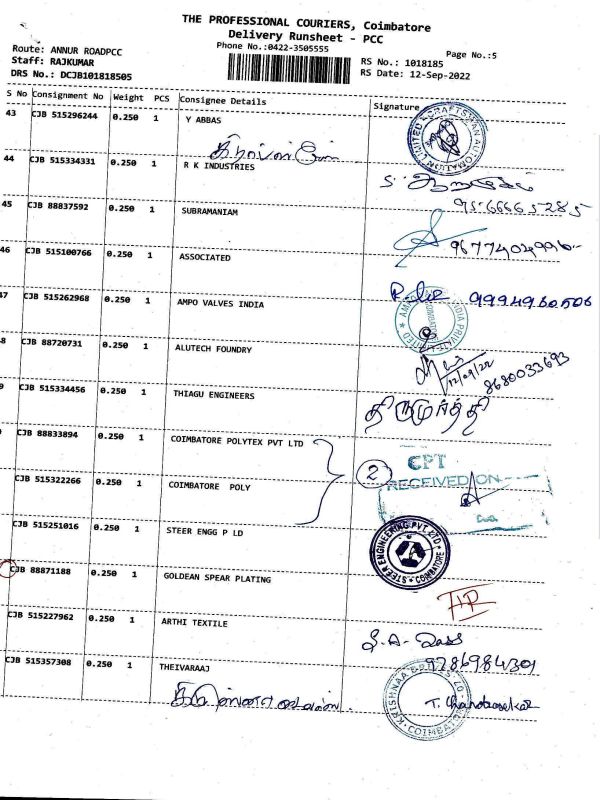 THE PROFESSIONAL COURIERS, Coimbatore
Delivery Runsheet - PCC
Phone No.:0422-3505555
Page No.:5
Route: ANNUR ROADPCC
Staff: RAJKUMAR
DRS No.: DCJB101818505
RS No.: 1018185
RS Date: 12-Sep-2022
S No Consignment No Weight PCS Consignee Details Signature
43 CJB 515296244 0.250 1 Y ABBAS
CRAFTSMAN AUTOMATION LIMITED
44 CJB 515334331 0.250 1 R K INDUSTRIES
9566665285
45 CJB 88837592 0.250 1 SUBRAMANIAM
46 CJB 515100766 0.250 1 ASSOCIATED
47 CJB 515262968 0.250 1 AMPO VALVES INDIA
9994960506
8 CJB 88720731 0.250 1 ALUTECH FOUNDRY
12/09/22
8680033693
9 CJB 515334456 0.250 1 THIAGU ENGINEERS
திருமுர்த்தி
CJB 88833894 0.250 1 COIMBATORE POLYTEX PVT LTD
2
CPT
RECEIVED ON
CJB 515322266 0.250 1 COIMBATORE POLY
CJB 515251016 0.250 1 STEER ENGG P LD
STEER ENGINEERING PVT. LTD. COIMBATORE
CJB 88871188 0.250 1 GOLDEAN SPEAR PLATING
CJB 515227962 0.250 1 ARTHI TEXTILE
9786984301
CJB 515357308 0.250 1 THEIVARAAJ
T. Chandrasekar